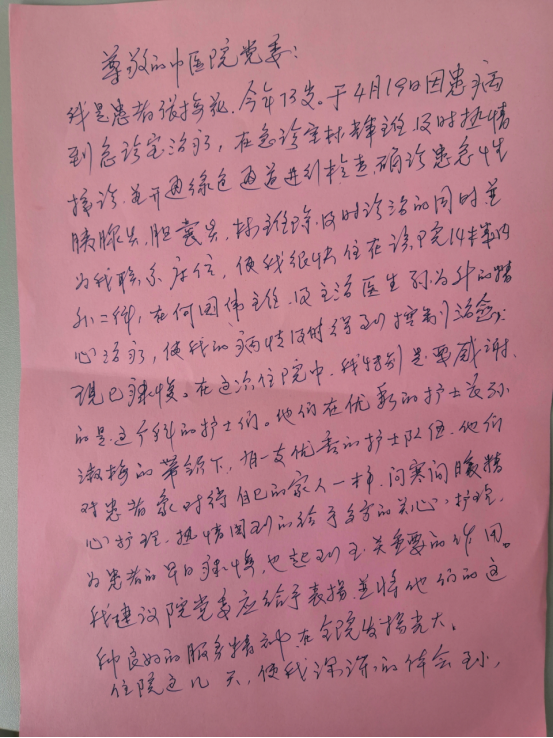 尊敬的中医院党委：
我是患者张梅花，今年73岁。于4月19日因患病
到急诊室治疗，在急诊室林主任及时热情
接诊，并开通绿色通道进行检查，确诊患急性
胰腺炎、胆囊炎，林主任除及时诊治的同时并
为我联系床位，使我很快住在该院14楼
外二科，在何国伟主任及主治医生孙为升的精
心治疗，使我的病情及时得到控制、治愈。
现已康复。在这次住院中，我特别是要感谢
的是这个科的护士们。他们在优秀的护士长孙
淑梅的带领下，有一支优秀的护士队伍，他们
对患者象对待自己的家人一样，问寒问暖，精
心护理，热情周到的给予多方的关心、护理，
为患者的早日康复，也起到至关重要的作用。
我建议院党委应给予表扬，并将他们的这
种良好的服务精神在全院发扬光大。
住院这几天，使我深深的体会到，